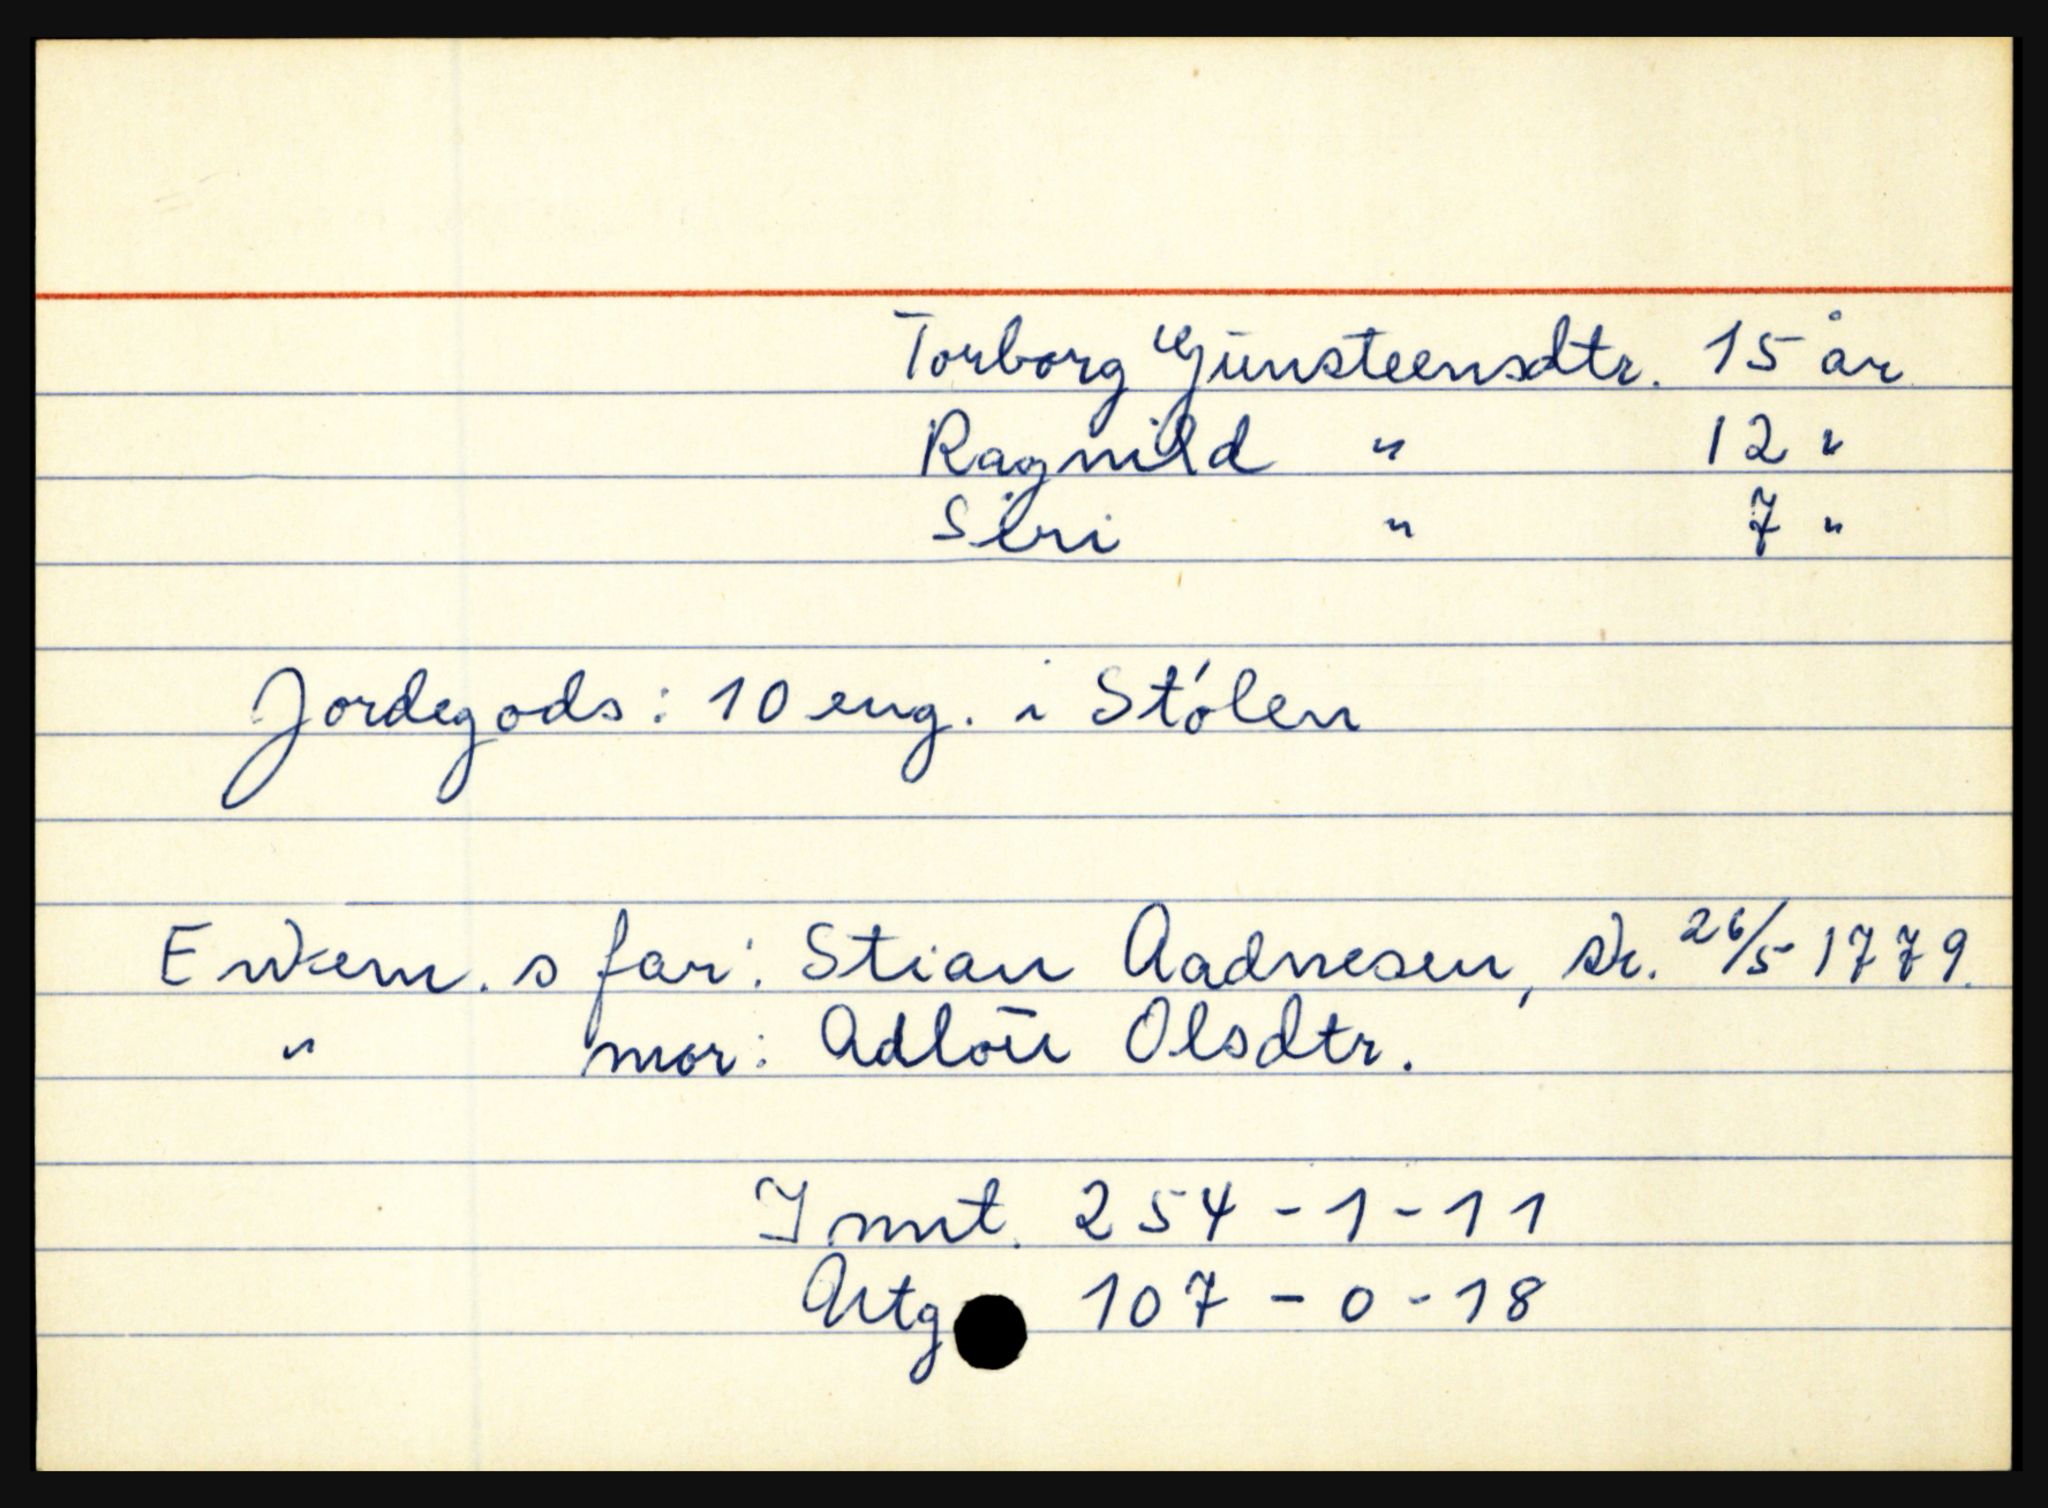 Torborg Gunsteensdtr. 15 år
Ragnild " 12 "
Siri " 7 "
Jordegods: 10 eng. i Stólen
Enkem. s far: Stian Aadnesen, sk. 26/5 1779.
" mor: Adlöu Olsdtr.
Innt. 254 - 1 - 11
Utg 107 - 0 - 18